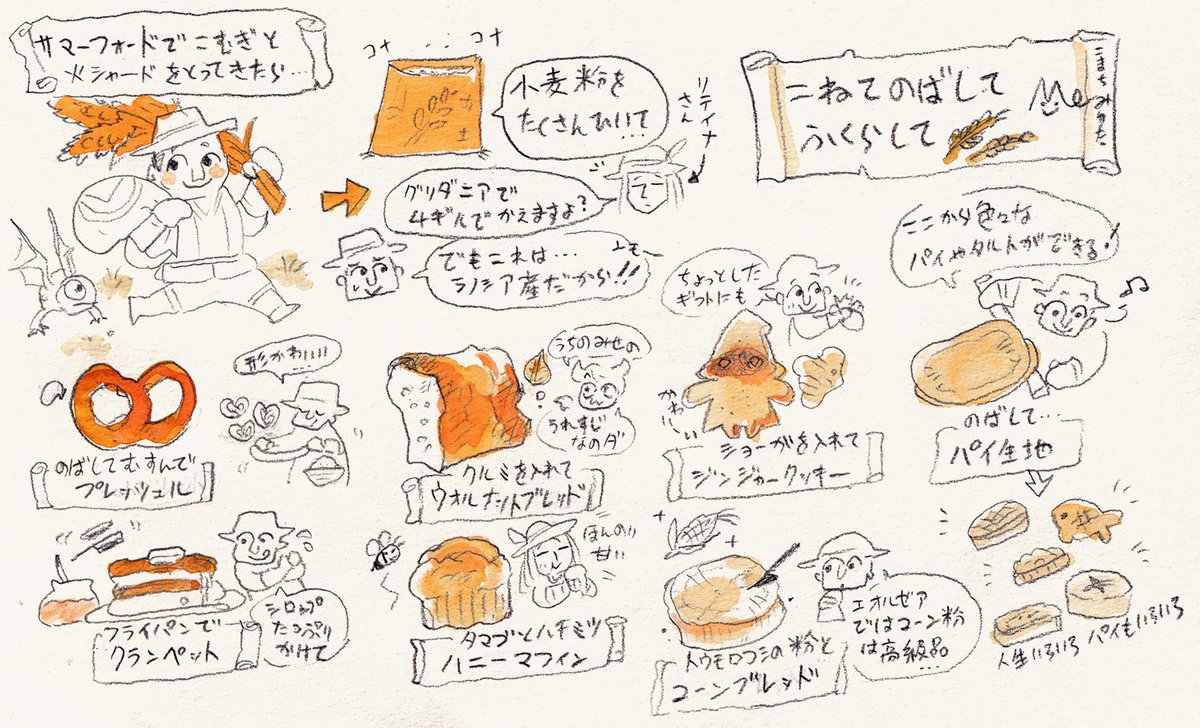 サマーフォードでこむぎと
火シャードをとってきたら…
コナ
コナ
小麦粉を
たくさんひいて
…
リテイナー
さん
グリダニアで
4ギルでかえますよ?
でもこれは…
ラノシア産だから!!
こねてのばして
ふくらして
Me
ここから色々な
パイやタルトができる!
ちょっとした
ギフトにも
形かわいい
のばしてむすんで
プレッツェル
うちのみせの
うれすじ
なのダ
クルミを入れて
ウオルナットブレッド
かわいい
ショーがを入れて
ジンジャークッキー
のばして…
パイ生地
シロップ
たっぷり
かけて
フライパンで
クランペット
ほんのり
甘い
タマゴとハチミツ
ハニーマフィン
エオルゼア
ではコーン粉
は高級品
…
トウモロコシの粉と
コーンブレッド
人生いろいろ パイもいろいろ